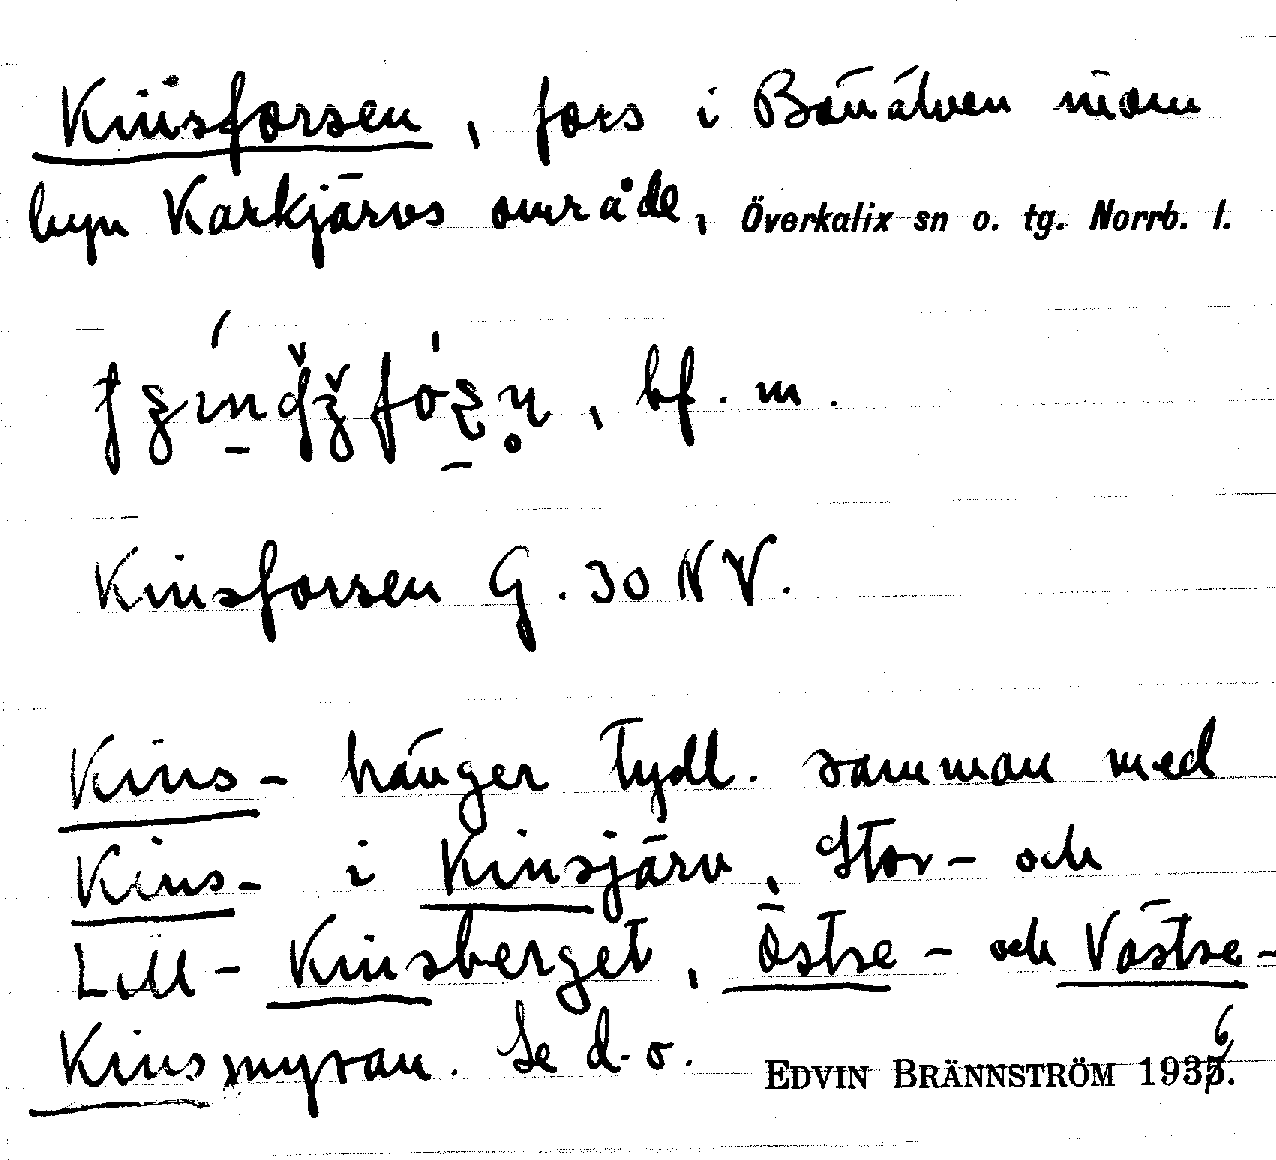 Kinsforsen, fors i Bönälven inom
byn Karkjärvs område, Överkalix sn o. tg. Norrb. l.
bf. m.
Kinsforsen G. 30 NV.
Kins- hänger tydl. samman med
Kins- i Kinsjärv, Stor- och
Lill- Kinsberget, Östre- och Västre-
Kinsmyran. Se d. o. EDVIN BRÄNNSTRÖM 1936.